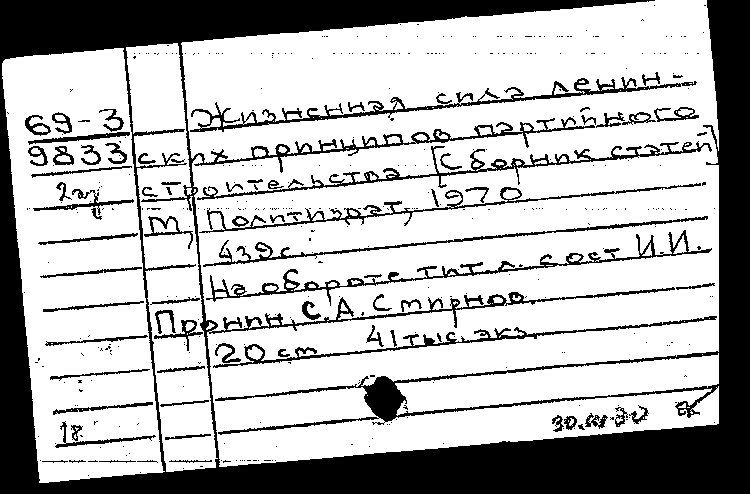 69-3 Жизненная сила ленин-
9833 ских принципов партийного
2 строительства. [Сборник статей]
М, Политиздат, 1970
439с.
На обороте тит.л. сост И.И.
Пронин, С.А. Смирнов.
20 см 41 тыс. экз.
18